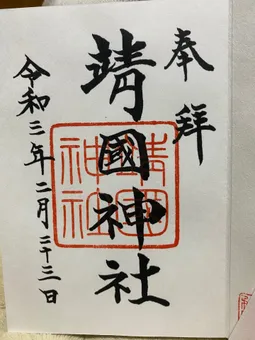 奉拜
靖國神社
令和三年二月二十三日
靖國神社